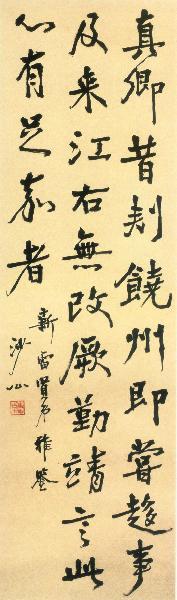 真卿昔刺饒州即嘗趍事
及来江右無改厥勤靖言此
心有足嘉者
新雷賢弟雅鑒
沙山